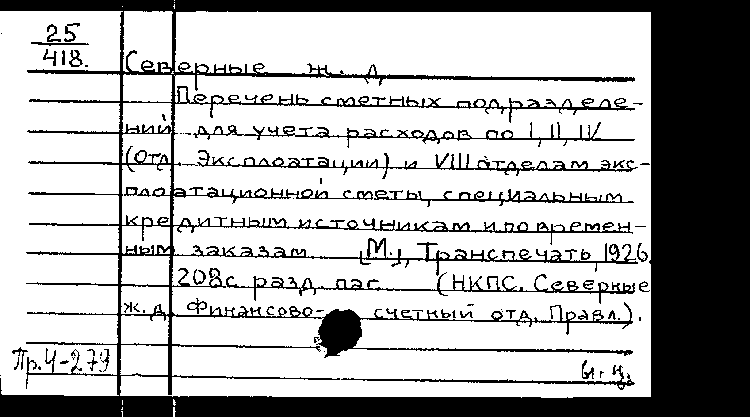 25
418.
Северные ж. д.
Перечень сметных подразделе-
ний для учета расходов по I, II, IV
(отд. Эксплоатации) и VIII отделам экс-
плоатационной сметы, специальным
кредитным источникам и по времен-
ным заказам. [М.], Транспечать, 1926.
208с. разд. паг. (НКПС. Северные
ж.д. Финансово-счетный отд. Правл.).
Пр.4-279